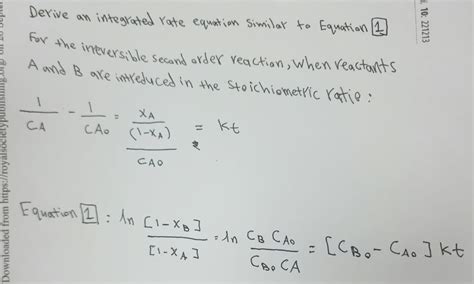 Derive an integrated rate equation similar to Equation [1]
For the irreversible second order reaction, when reactants
A and B are introduced in the stoichiometric ratio:
1/CA - 1/CA0 = XA/(1-XA)/CA0 = kt
Equation [1]: ln [1-XB]/[1-XA] = ln CB CA0/CB0 CA = [CB0 - CA0] kt
Downloaded from https://royalsocietypublishing.org/ on 26
10: 221213